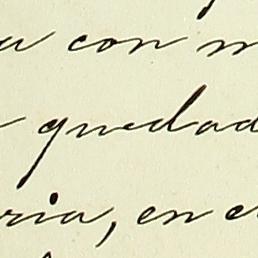 a con m
quedad
ria, en e